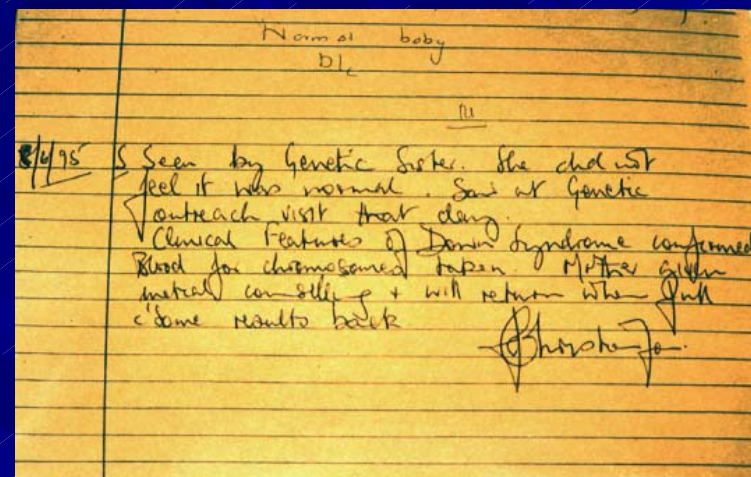 Normal baby
D/c
8/6/95 Seen by Genetic Sister. She did not
feel it was normal. Saw at Genetic
outreach visit that day.
Clinical Features of Down Syndrome confirmed
Blood for chromosomes taken. Mother given
counselling + will return when
c'some results back